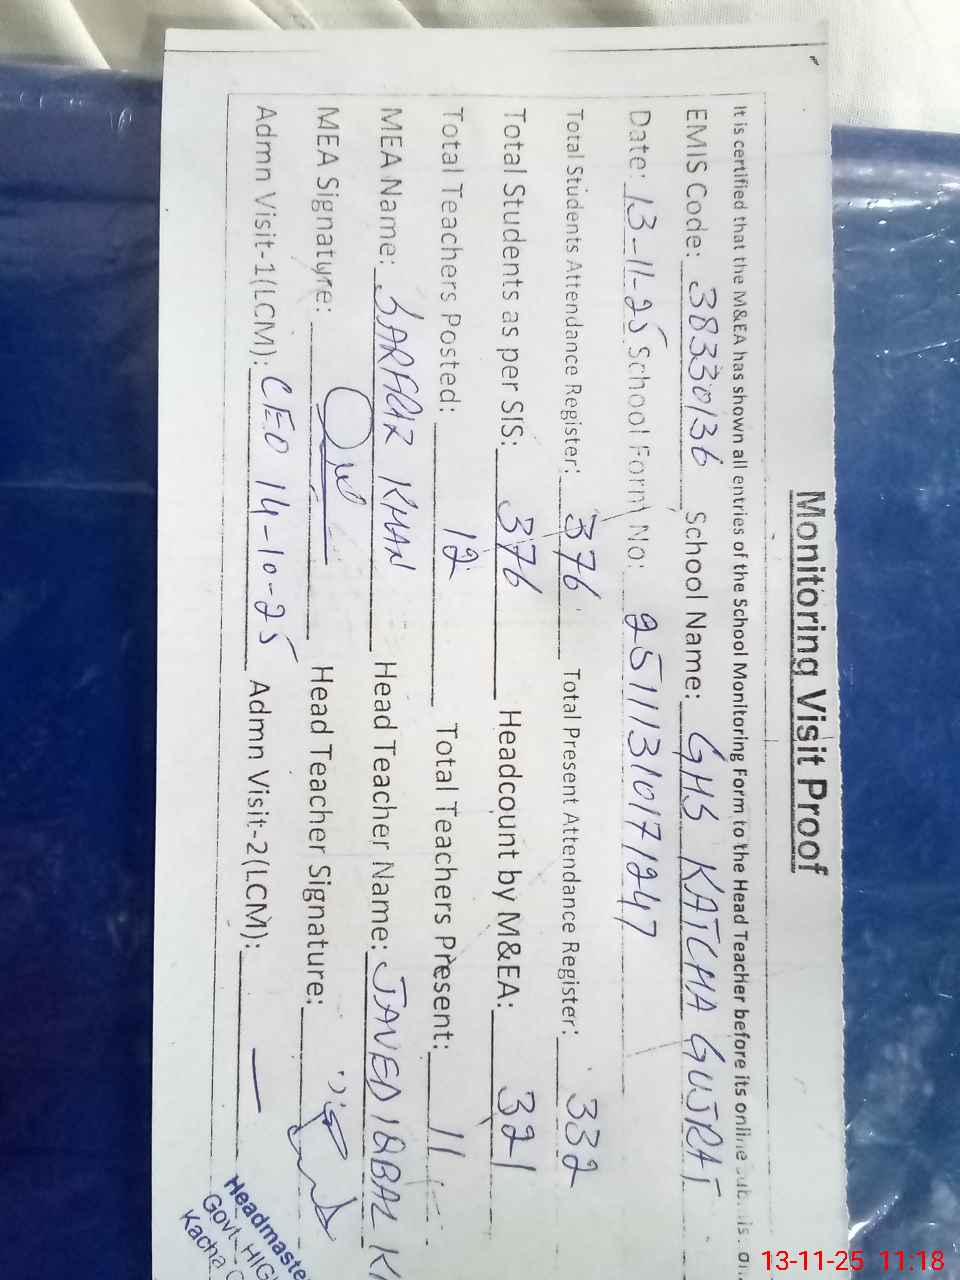 Monitoring Visit Proof
It is certified that the M&EA has shown all entries of the School Monitoring Form to the Head Teacher before its online
EMIS Code: 38330136 School Name: GHS KATCHA GUJRAT
Date: 13-11-25 School Form No: 25111310171247
Total Students Attendance Register: 376 Total Present Attendance Register: 332
Total Students as per SIS: 376 Headcount by M&EA: 321
Total Teachers Posted: 12 Total Teachers Present: 11
MEA Name: SARFRAZ KHAN Head Teacher Name: JAVED IQBAL
MEA Signature: Head Teacher Signature:
Admn Visit-1(LCM): CEO 14-10-25 Admn Visit-2(LCM): —
Headmaste
Govt. HIG
Kacha
13-11-25 11:18